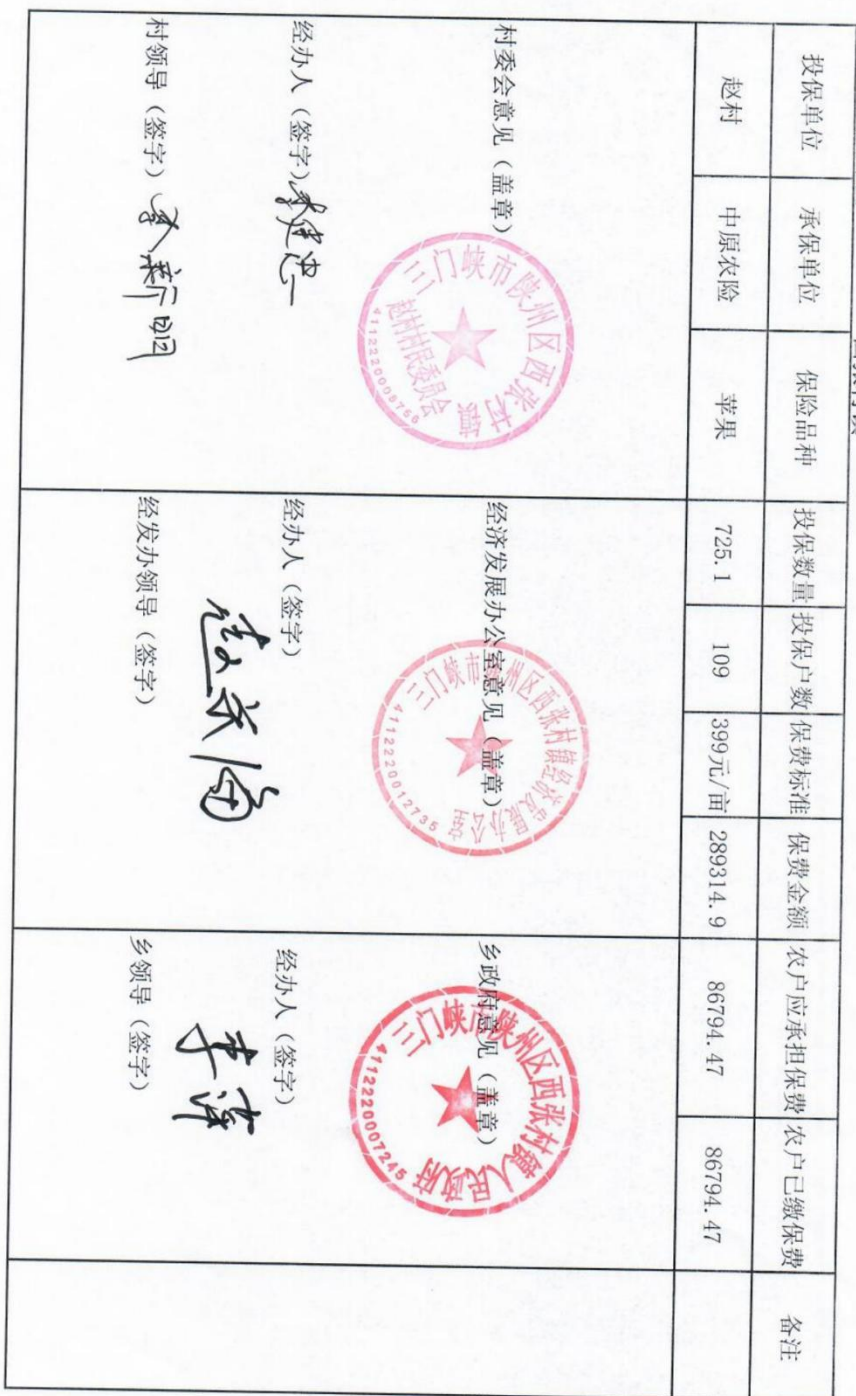 投保单位 承保单位 保险品种 投保数量 投保户数 保费标准 保费金额 农户应承担保费 农户已缴保费 备注
赵村 中原农险 苹果 725.1 109 399元/亩 289314.9 86794.47 86794.47
村委会意见（盖章）
三门峡市陕州区西张村镇
赵村村民委员会
4112220008766
经办人（签字）李建忠
村领导（签字）
经济发展办公室意见（盖章）
三门峡市陕州区西张村镇经济发展办公室
4112220012735
经办人（签字）
经发办领导（签字）
乡政府意见（盖章）
三门峡市陕州区西张村镇人民政府
4112220007245
经办人（签字）
乡领导（签字）